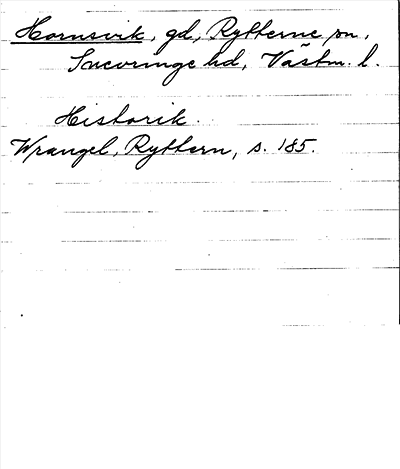 Hornsvik, gd, Rytterne sn,
Snevringe hd, Västm. l.
Historik.
Wrangel, Ryttern, s. 185.